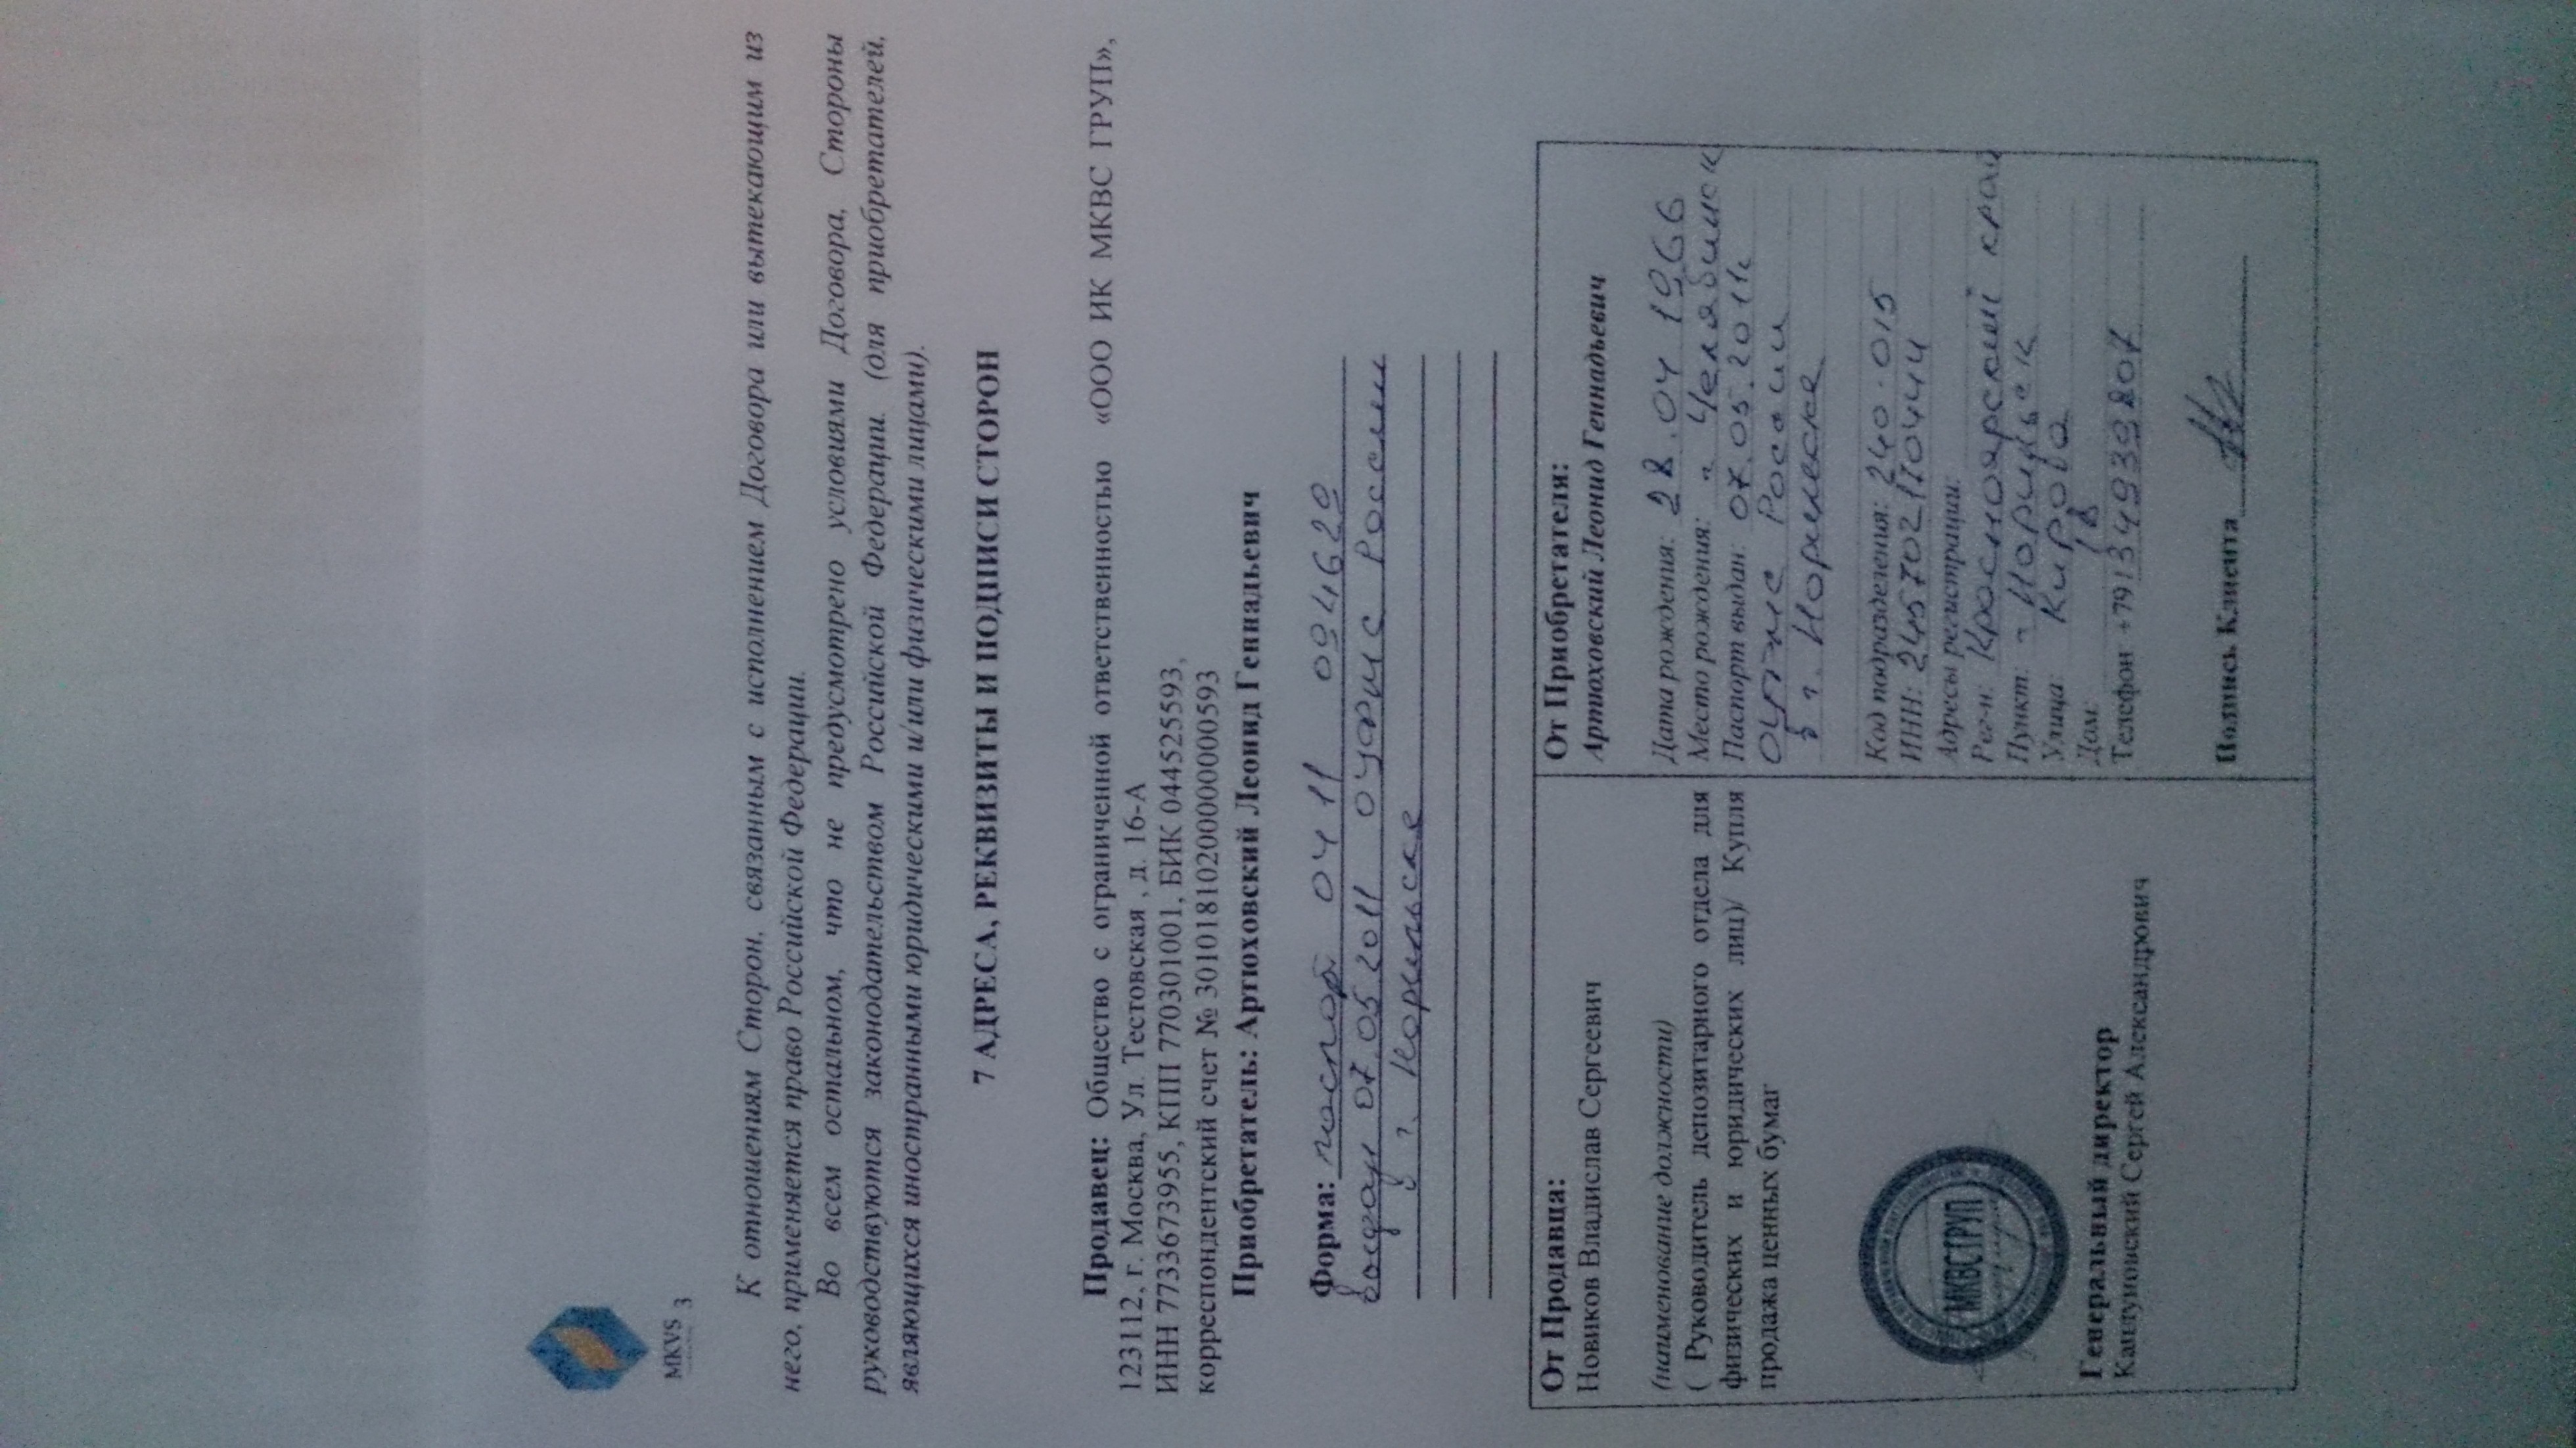 MKVS 3
К отношениям Сторон, связанным с исполнением Договора или вытекающим из
него, применяется право Российской Федерации.
Во всем остальном, что не предусмотрено условиями Договора, Стороны
руководствуются законодательством Российской Федерации. (для приобретателей,
являющихся иностранными юридическими и/или физическими лицами).
7 АДРЕСА, РЕКВИЗИТЫ И ПОДПИСИ СТОРОН
Продавец: Общество с ограниченной ответственностью «ООО ИК МКВС ГРУП»,
123112, г. Москва, Ул. Тестовская , д. 16-А
ИНН 7733673955, КПП 770301001, БИК 044525593,
корреспондентский счет № 30101810200000000593
Приобретатель: Артюховский Леонид Геннадьевич
Форма: паспорт 04 11 094629
выдан 07.05 2011 ОУФМС России
в г. Норильске
От Продавца:
Новиков Владислав Сергеевич
(наименование должности)
( Руководитель депозитарного отдела для
физических и юридических лиц)/ Купля
продажа ценных бумаг
МКВСГРУП
Генеральный директор
Сергей Александрович
От Приобретателя:
Артюховский Леонид Геннадьевич
Дата рождения: 28.04 1966
Место рождения: г Челябинск
Паспорт выдан: 07.05.2011г
ОУФМС России
в г. Норильске
Код подразделения: 240.015
ИНН: 245702170444
Адресы регистрации:
Рег-н: Красноярский край
Пункт: г Норильск
Улица Кирова
Дом: 18
Телефон +79134939207
Подпись Клиента